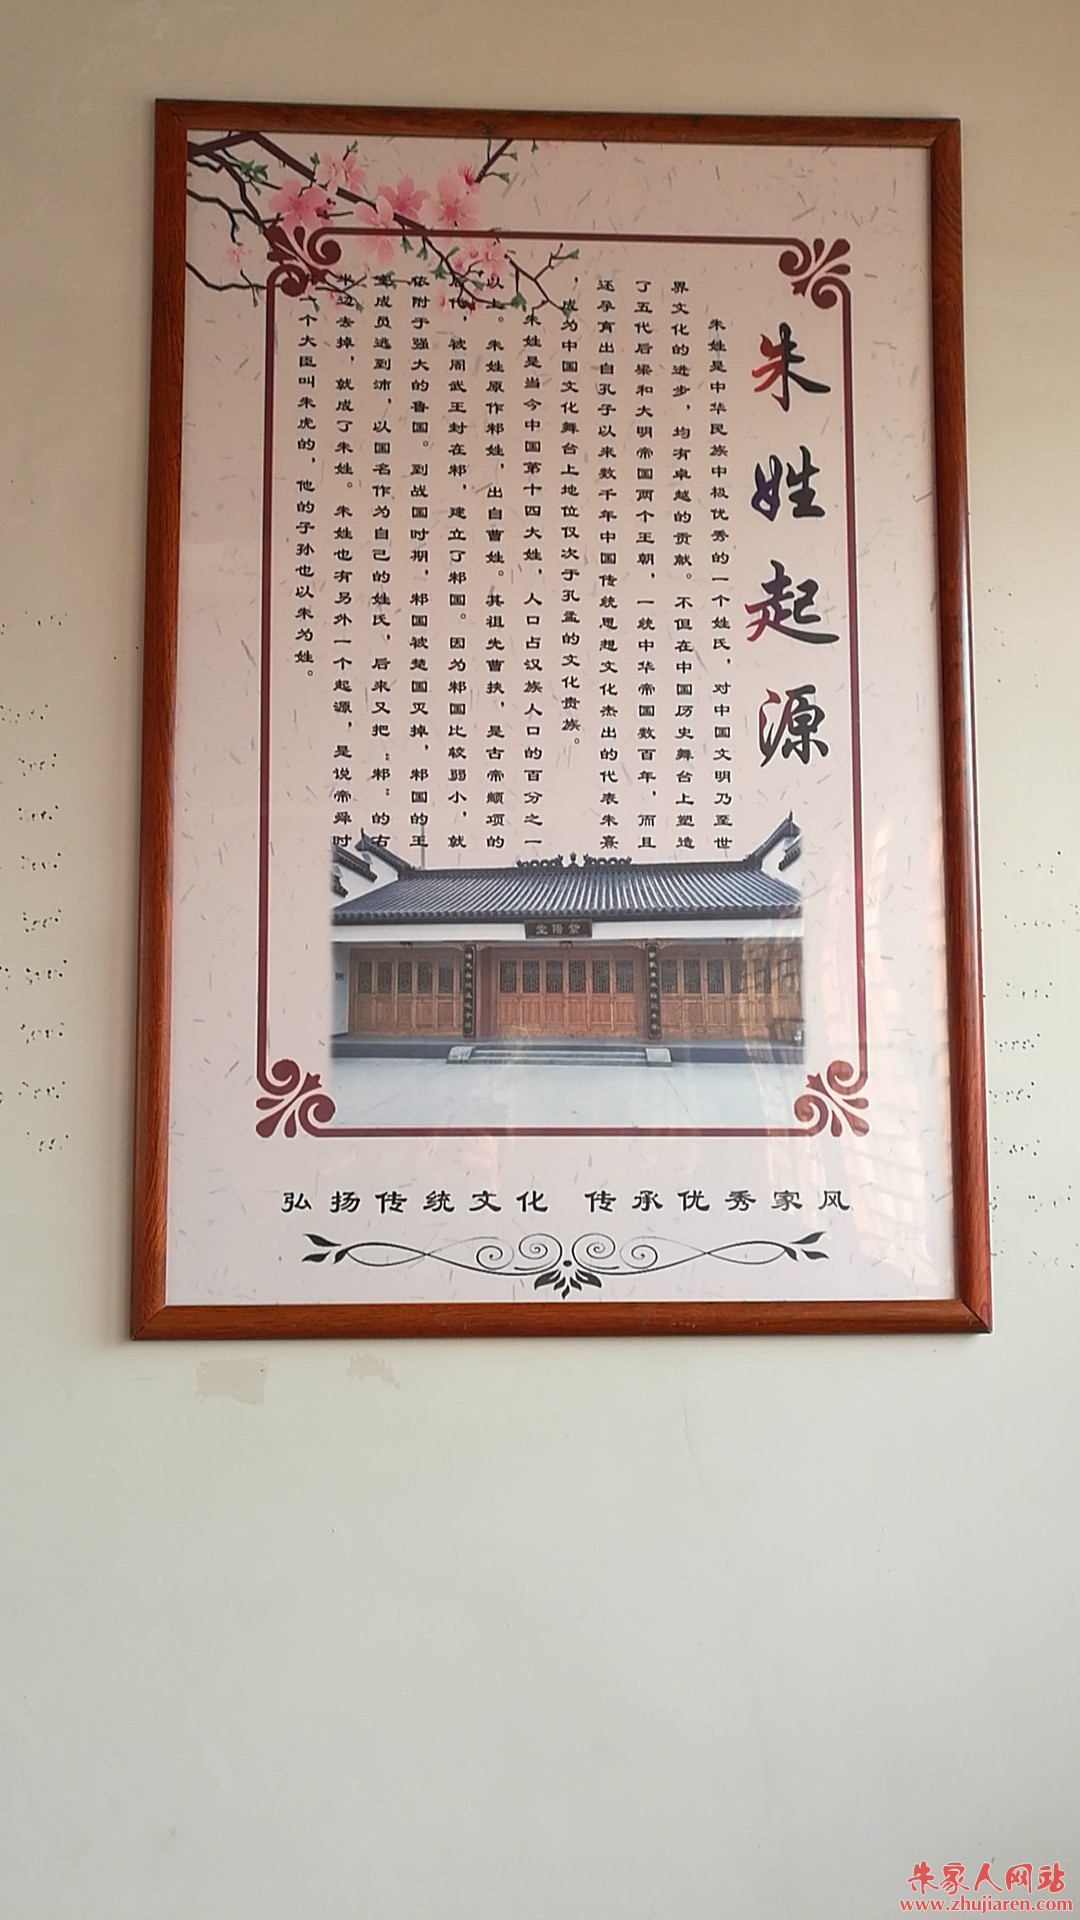 朱姓起源
朱姓是中华民族中极优秀的一个姓氏，对中国文明乃至世
界文化的进步，均有卓越的贡献。不但在中国历史舞台上塑造
了五代后梁和大明帝国两个王朝，一统中华帝国数百年，而且
还孕育出自孔子以来数千年中国传统思想文化杰出的代表朱熹
，成为中国文化舞台上地位仅次于孔孟的文化贵族。
朱姓是当今中国第十四大姓，人口占汉族人口的百分之一
以上。朱姓原作邾姓，出自曹姓。其祖先曹挟，是古帝顺项的
后代，被周武王封在邾，建立了邾国。因为邾国比较弱小，就
依附于强大的鲁国。到战国时期，邾国被楚国灭掉，邾国的王
室成员逃到沛，以国名作为自己的姓氏，后来又把“邾”的右
半边去掉，就成了朱姓。朱姓也有另外一个起源，是说帝舜时
一个大臣叫朱虎的，他的子孙也以朱为姓。
紫陽堂
弘扬传统文化 传承优秀家风
朱家人网站
www.zhujiaren.com